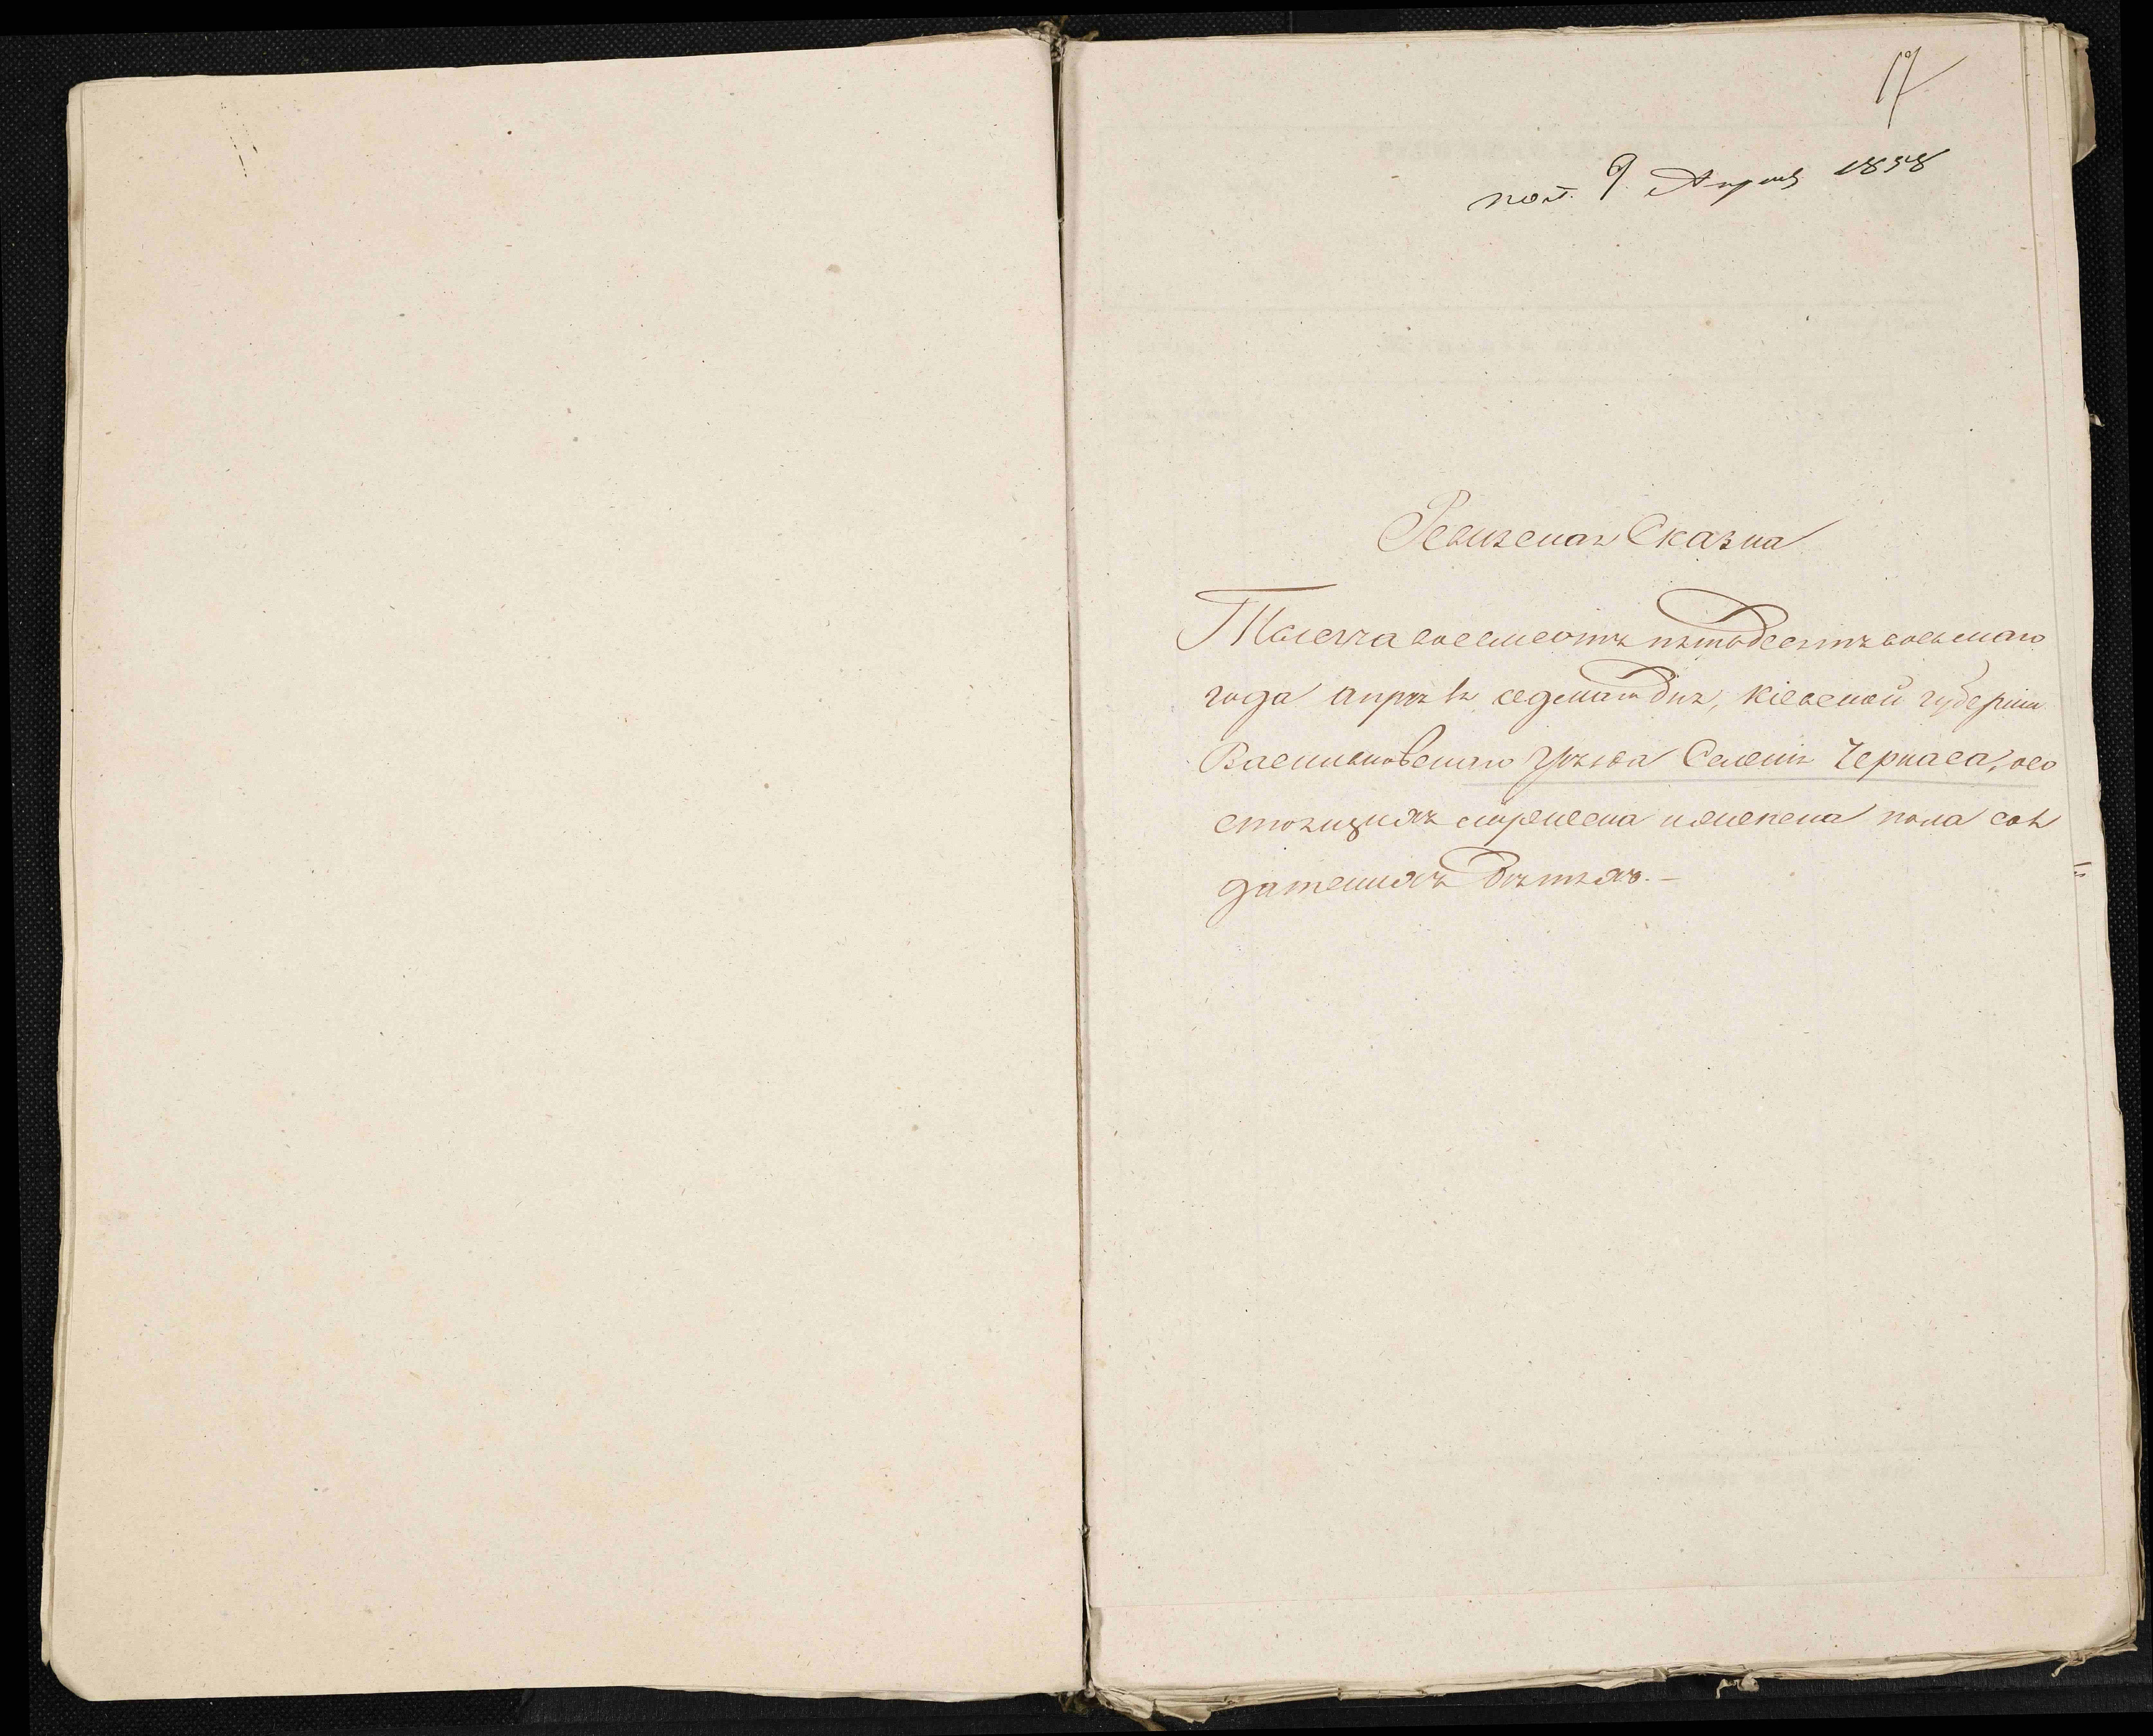 17
пол. 9 Апреля 1858
Ревизская Сказка
Тысяча восемсотъ пятьдесятъ восьмаго
года апреля седмаго дня, Кіевской губерніи
Васильковскаго уѣзда Селенія Черкаса, о со
стоящихъ мужеска и женска пола сол
датскихъ дѣтяхъ.